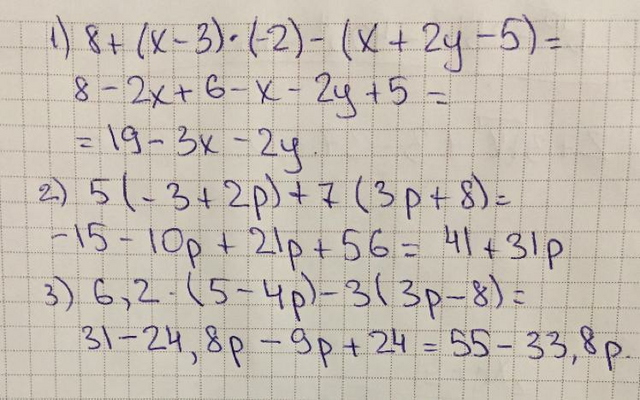 1) 8 + (x - 3) · (-2) - (x + 2y - 5) =
8 - 2x + 6 - x - 2y + 5 =
= 19 - 3x - 2y.
2) 5 (-3 + 2p) + 7 (3p + 8) =
-15 - 10p + 21p + 56 = 41 + 31p
3) 6,2 · (5 - 4p) - 3 (3p - 8) =
31 - 24,8p - 9p + 24 = 55 - 33,8p.